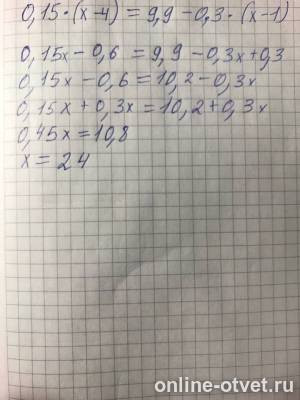 0,15·(x-4) = 9,9 -0,3·(x-1)
0,15x - 0,6 = 9,9 - 0,3x + 0,3
0,15x - 0,6 = 10,2 - 0,3x
0,15x + 0,3x = 10,2 + 0,3x
0,45x = 10,8
x = 24
online-otvet.ru